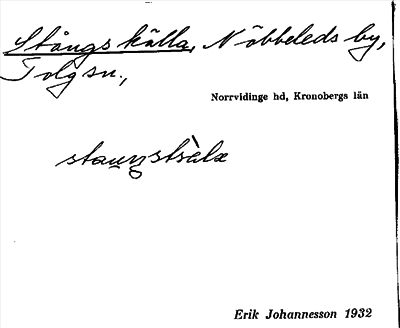 Stångs källa, Nöbbeleds by,
Tolg sn.,
Norrvidinge hd, Kronobergs län
Erik Johannesson 1932